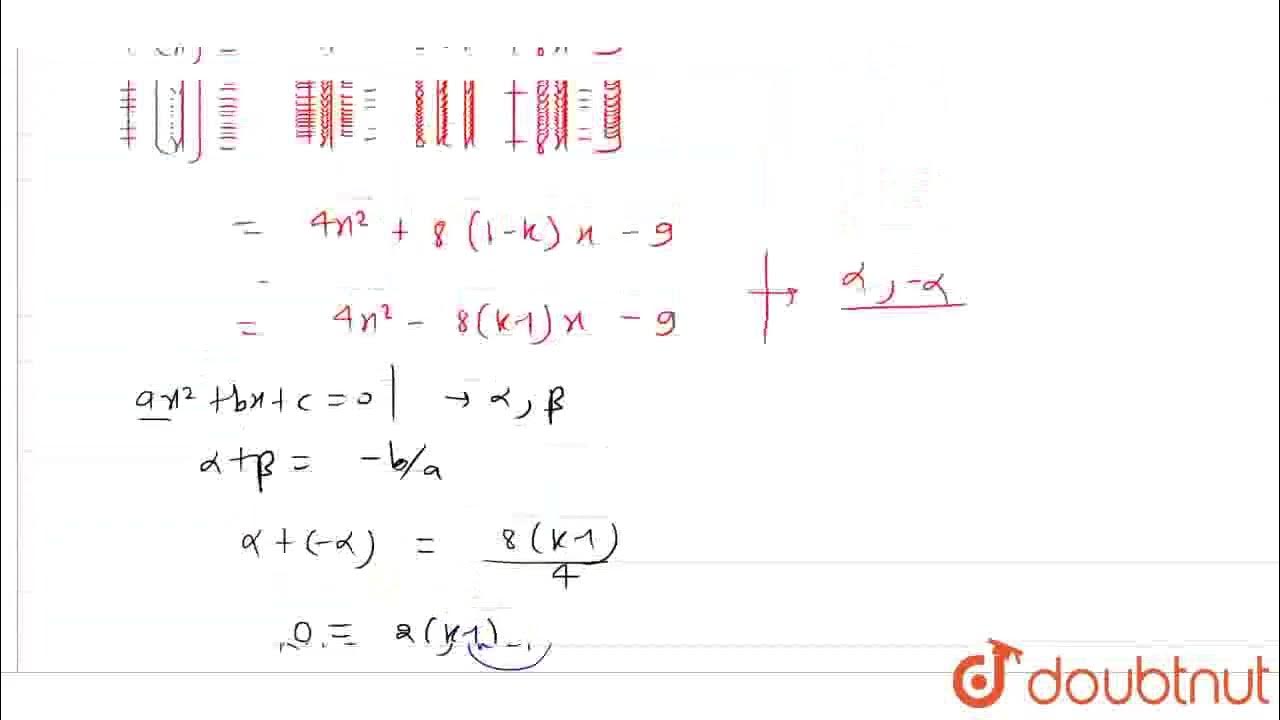 = 4x² + 8(1-k)x - 9
= 4x² - 8(k-1)x - 9 → α, -α
ax² + bx + c = 0 | → α, β
α+β = -b/a
α + (-α) = 8(k-1)/4
0 = 2(k-1)
doubtnut